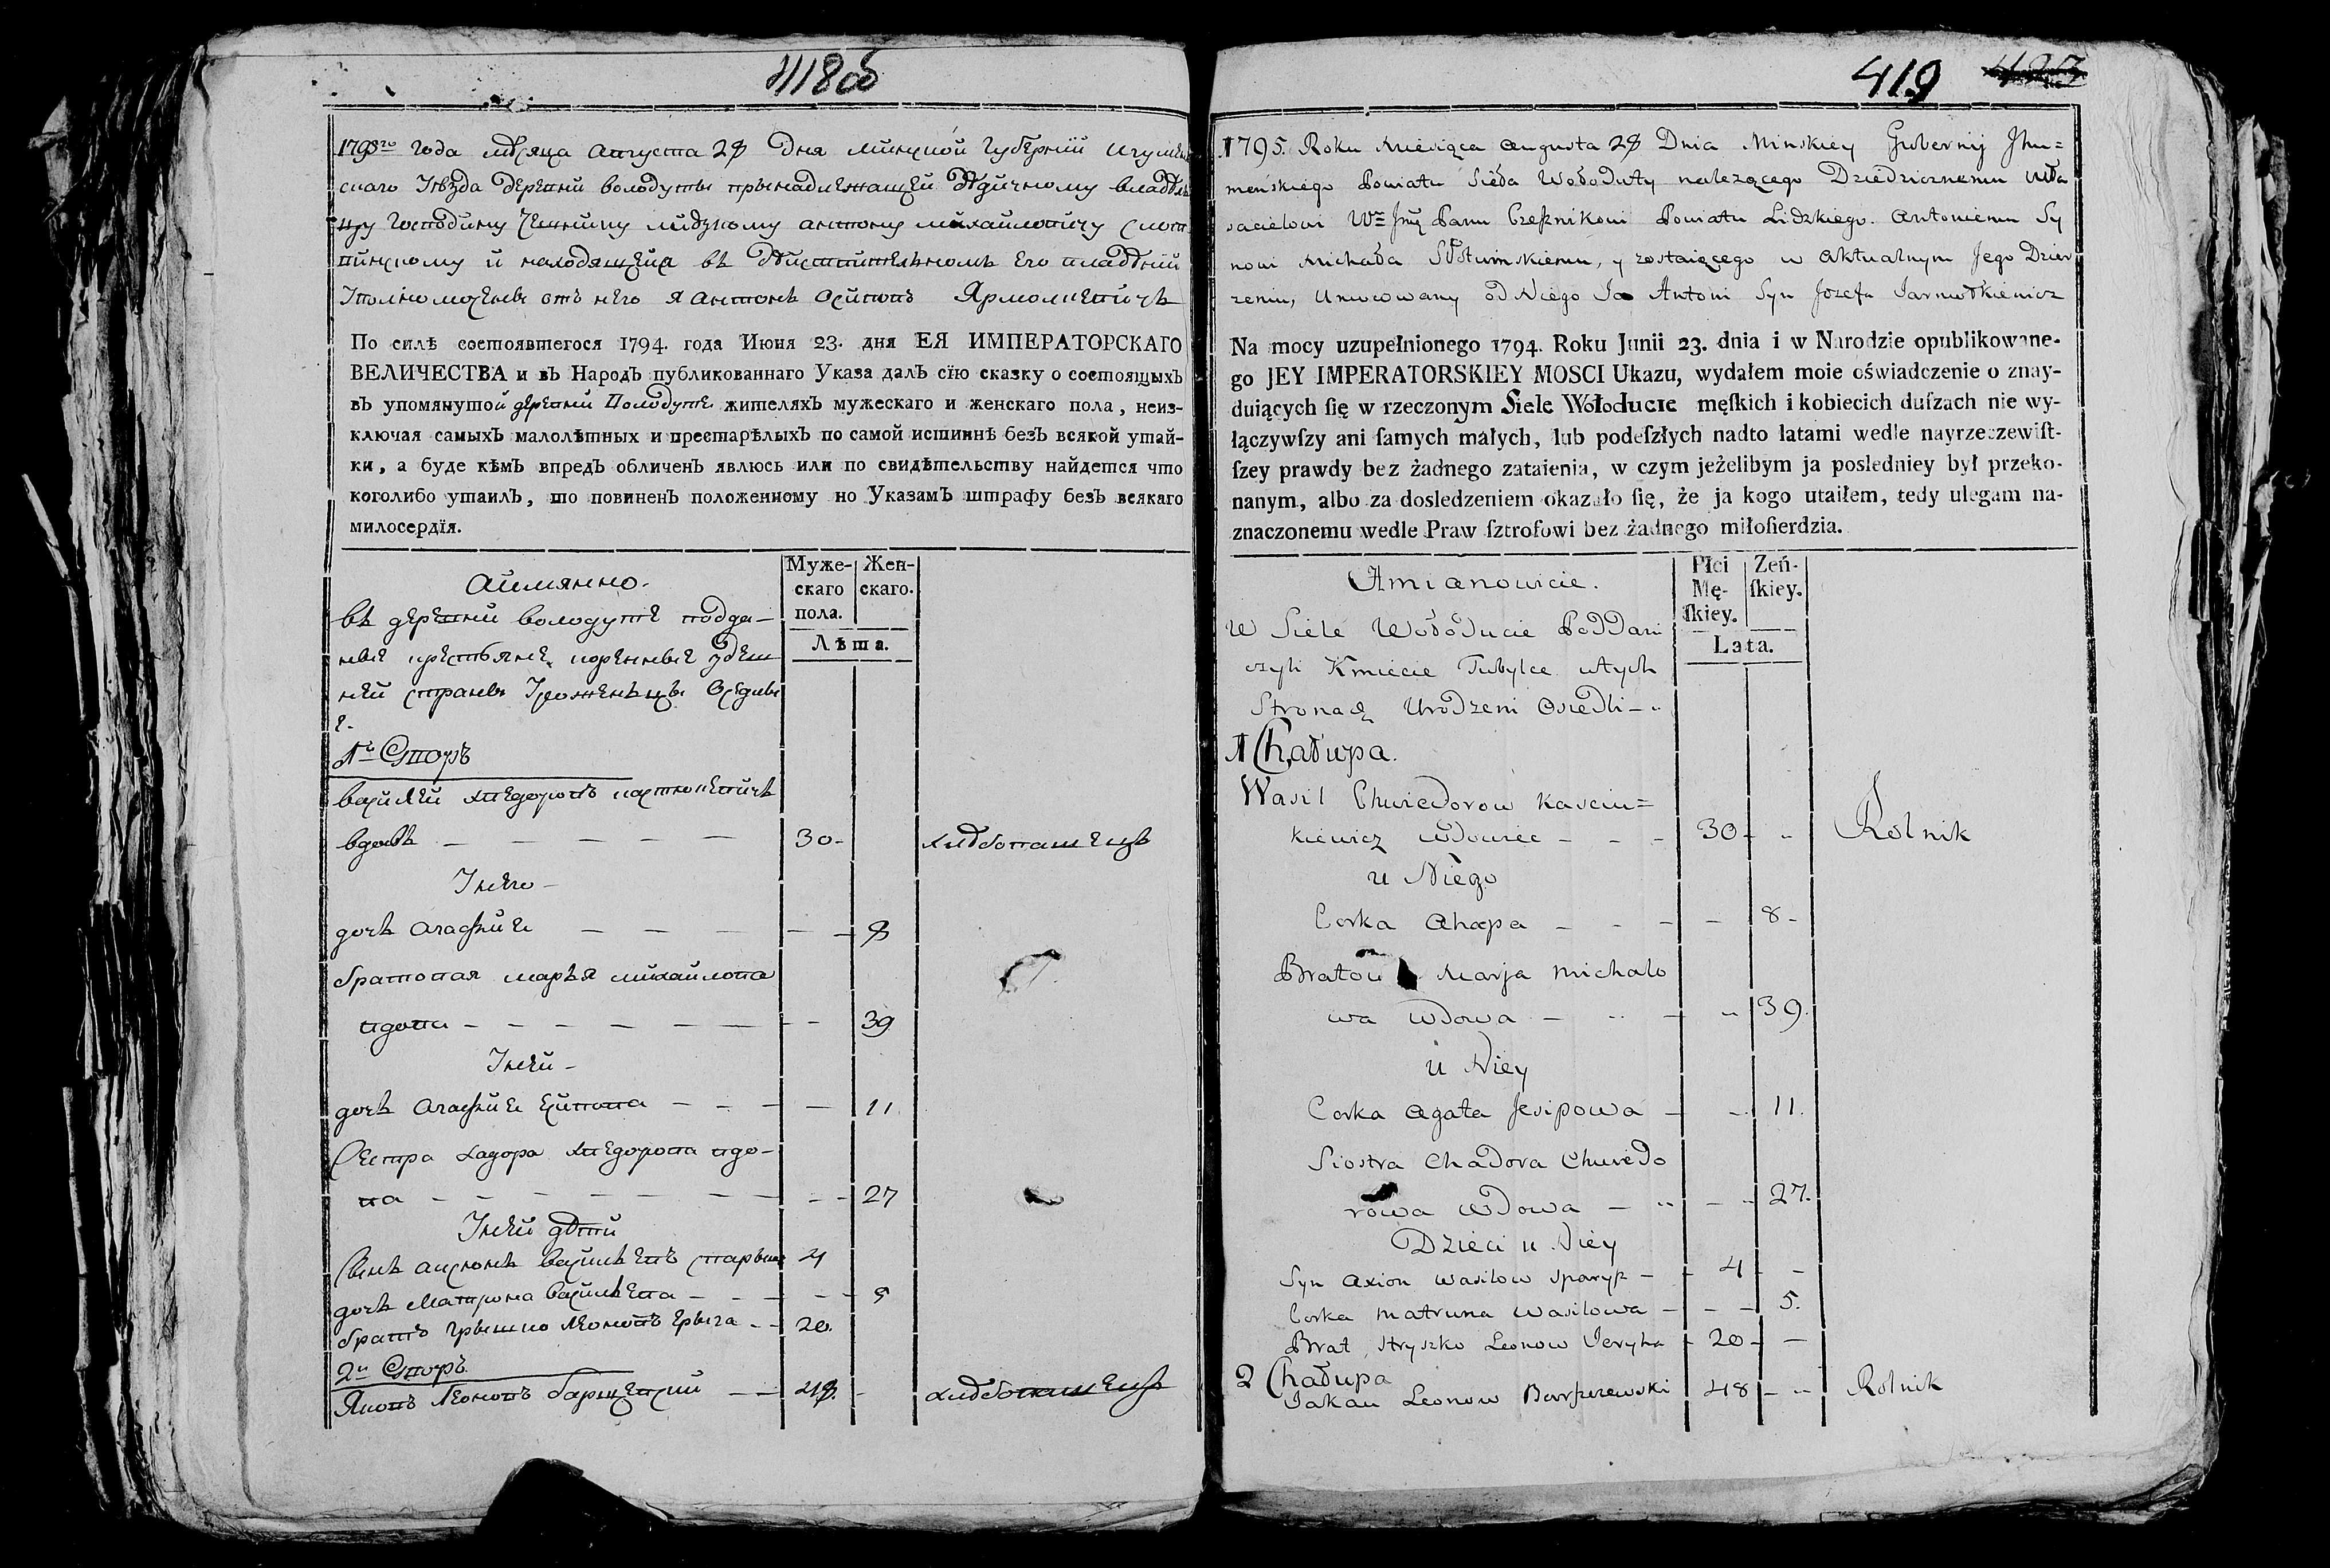 418об
1795го года мѣсяца августа 28 дня минской губернїи игумен
скаго уѣзда деревни володуты принадлежащей дѣдичному владѣл
цу господину чешнику лидзкому антону михайловичу слот
винскому и находящейся въ дѣйствительномъ его владѣнїи
уполномоченъ отъ него я антонъ осиповъ Ярмолкевичъ
По силѣ состоявшегося 1794. года Июня 23. дня ЕЯ ИМПЕРАТОРСКАГО
ВЕЛИЧЕСТВА и въ Народъ публикованнаго Указа далъ сїю сказку о состоящыхъ
въ упомянутой деревни Володуте жителяхъ мужескаго и женскаго пола, неиз-
ключая самыхъ малолѣтныхъ и престарѣлыхъ по самой истиннѣ безъ всякой утай-
ки, а буде кѣмъ впредъ обличенъ явлюсь или по свидѣтельству найдется что
коголибо утаилъ, то повиненъ положенному по Указамъ штрафу безъ всякаго
милосердїя.
Муже- Жен-
скаго скаго.
пола.
Лѣта.
аимянно.
въ деревни володуте подда-
ные крестьяне коренные здеш
ней страны уроженьцы оседлы
е.
1й Дворъ
василей хведоровъ касткевичъ
вдовъ — — — — — 30- хлѣбопашецъ
Унего-
дочъ агафийе — — — — — 8
братовая марья михайлова
вдова - - — — — - - 39
Уней-
дочъ агафийе есипова - - - — 11
Сестра хадора хведорова вдо-
ва - - - — — — — - - 27
Уней дѣти
сынъ аксюнъ васильевъ спарыш 4
дочъ матрона васильева - - - - - 5
братъ грышко леоновъ ерыга - - 20.
2й Дворъ
Яковъ леоновъ барщевский — — 48. - хлѣбопашецъ
419 423
1795. Roku miesiąca augusta 28 Dnia Minskiey Gubernij Jhu=
menskiego Powiatu Sieła Wołoduty nalezącego Dziedzicznemu Wła
sacielowi Wmu Jmć Panu Czesznikowi Powiatu Lidzkiego. Antoniemu Sy
nowi Michała Słotwinskiemu, y zostaiącego w aktualnym Jego Dzier
zeniu, umocowany od Niego Ja Antoni Syn Jozefa Jarmołkiewicz
Na mocy uzupełnionego 1794. Roku Junii 23. dnia i w Narodzie opublikowane-
go JEY IMPERATORSKIEY MOSCI Ukazu, wydałem moie oświadczenie o znay-
duiących ſię w rzeczonym Siele Wołoducie męſkich i kobiecich duſzach nie wy-
łączywſzy ani ſamych małych, lub podeſzłych nadto latami wedle nayrzeczewiſt-
ſzey prawdy bez żadnego zataienia, w czym jeżelibym ja posledniey był przeko-
nanym, albo za dosledzeniem okazało ſię, że ja kogo utaiłem, tedy ulegam na-
znaczonemu wedle Praw ſztrofowi bez żadnego miłoſierdzia.
Płci Zeń-
Mę- ſkiey.
ſkiey.
Lata.
Amianowicie.
W Siele Wołoducie Poddani
czyli Kmiecie Tubylce wtych
Stronach Urodzeni Osiedli - -
1 Chałupa.
Wasil Chwiedorow Kasciu=
kiewicz wdowiec - - - 30 - - Rolnik
u Niego
Corka Ahapa - - - - 8 -
Bratow Marja Michalo
wa Wdowa — - - - 39.
u Niey
Corka Agata Jesipowa - - 11.
Siostra Chadora Chwiedo
rowa Wdowa — - - - 27.
Dzieci u Niey
Syn Axion Wasilow sparysz - - 4 - -
Corka Matruna Wasilowa - - - 5.
Brat Hryszko Leonow Jeryha - 20 - —
2 Chałupa
Jakau Leonow Barszczewski 48 - - Rolnik